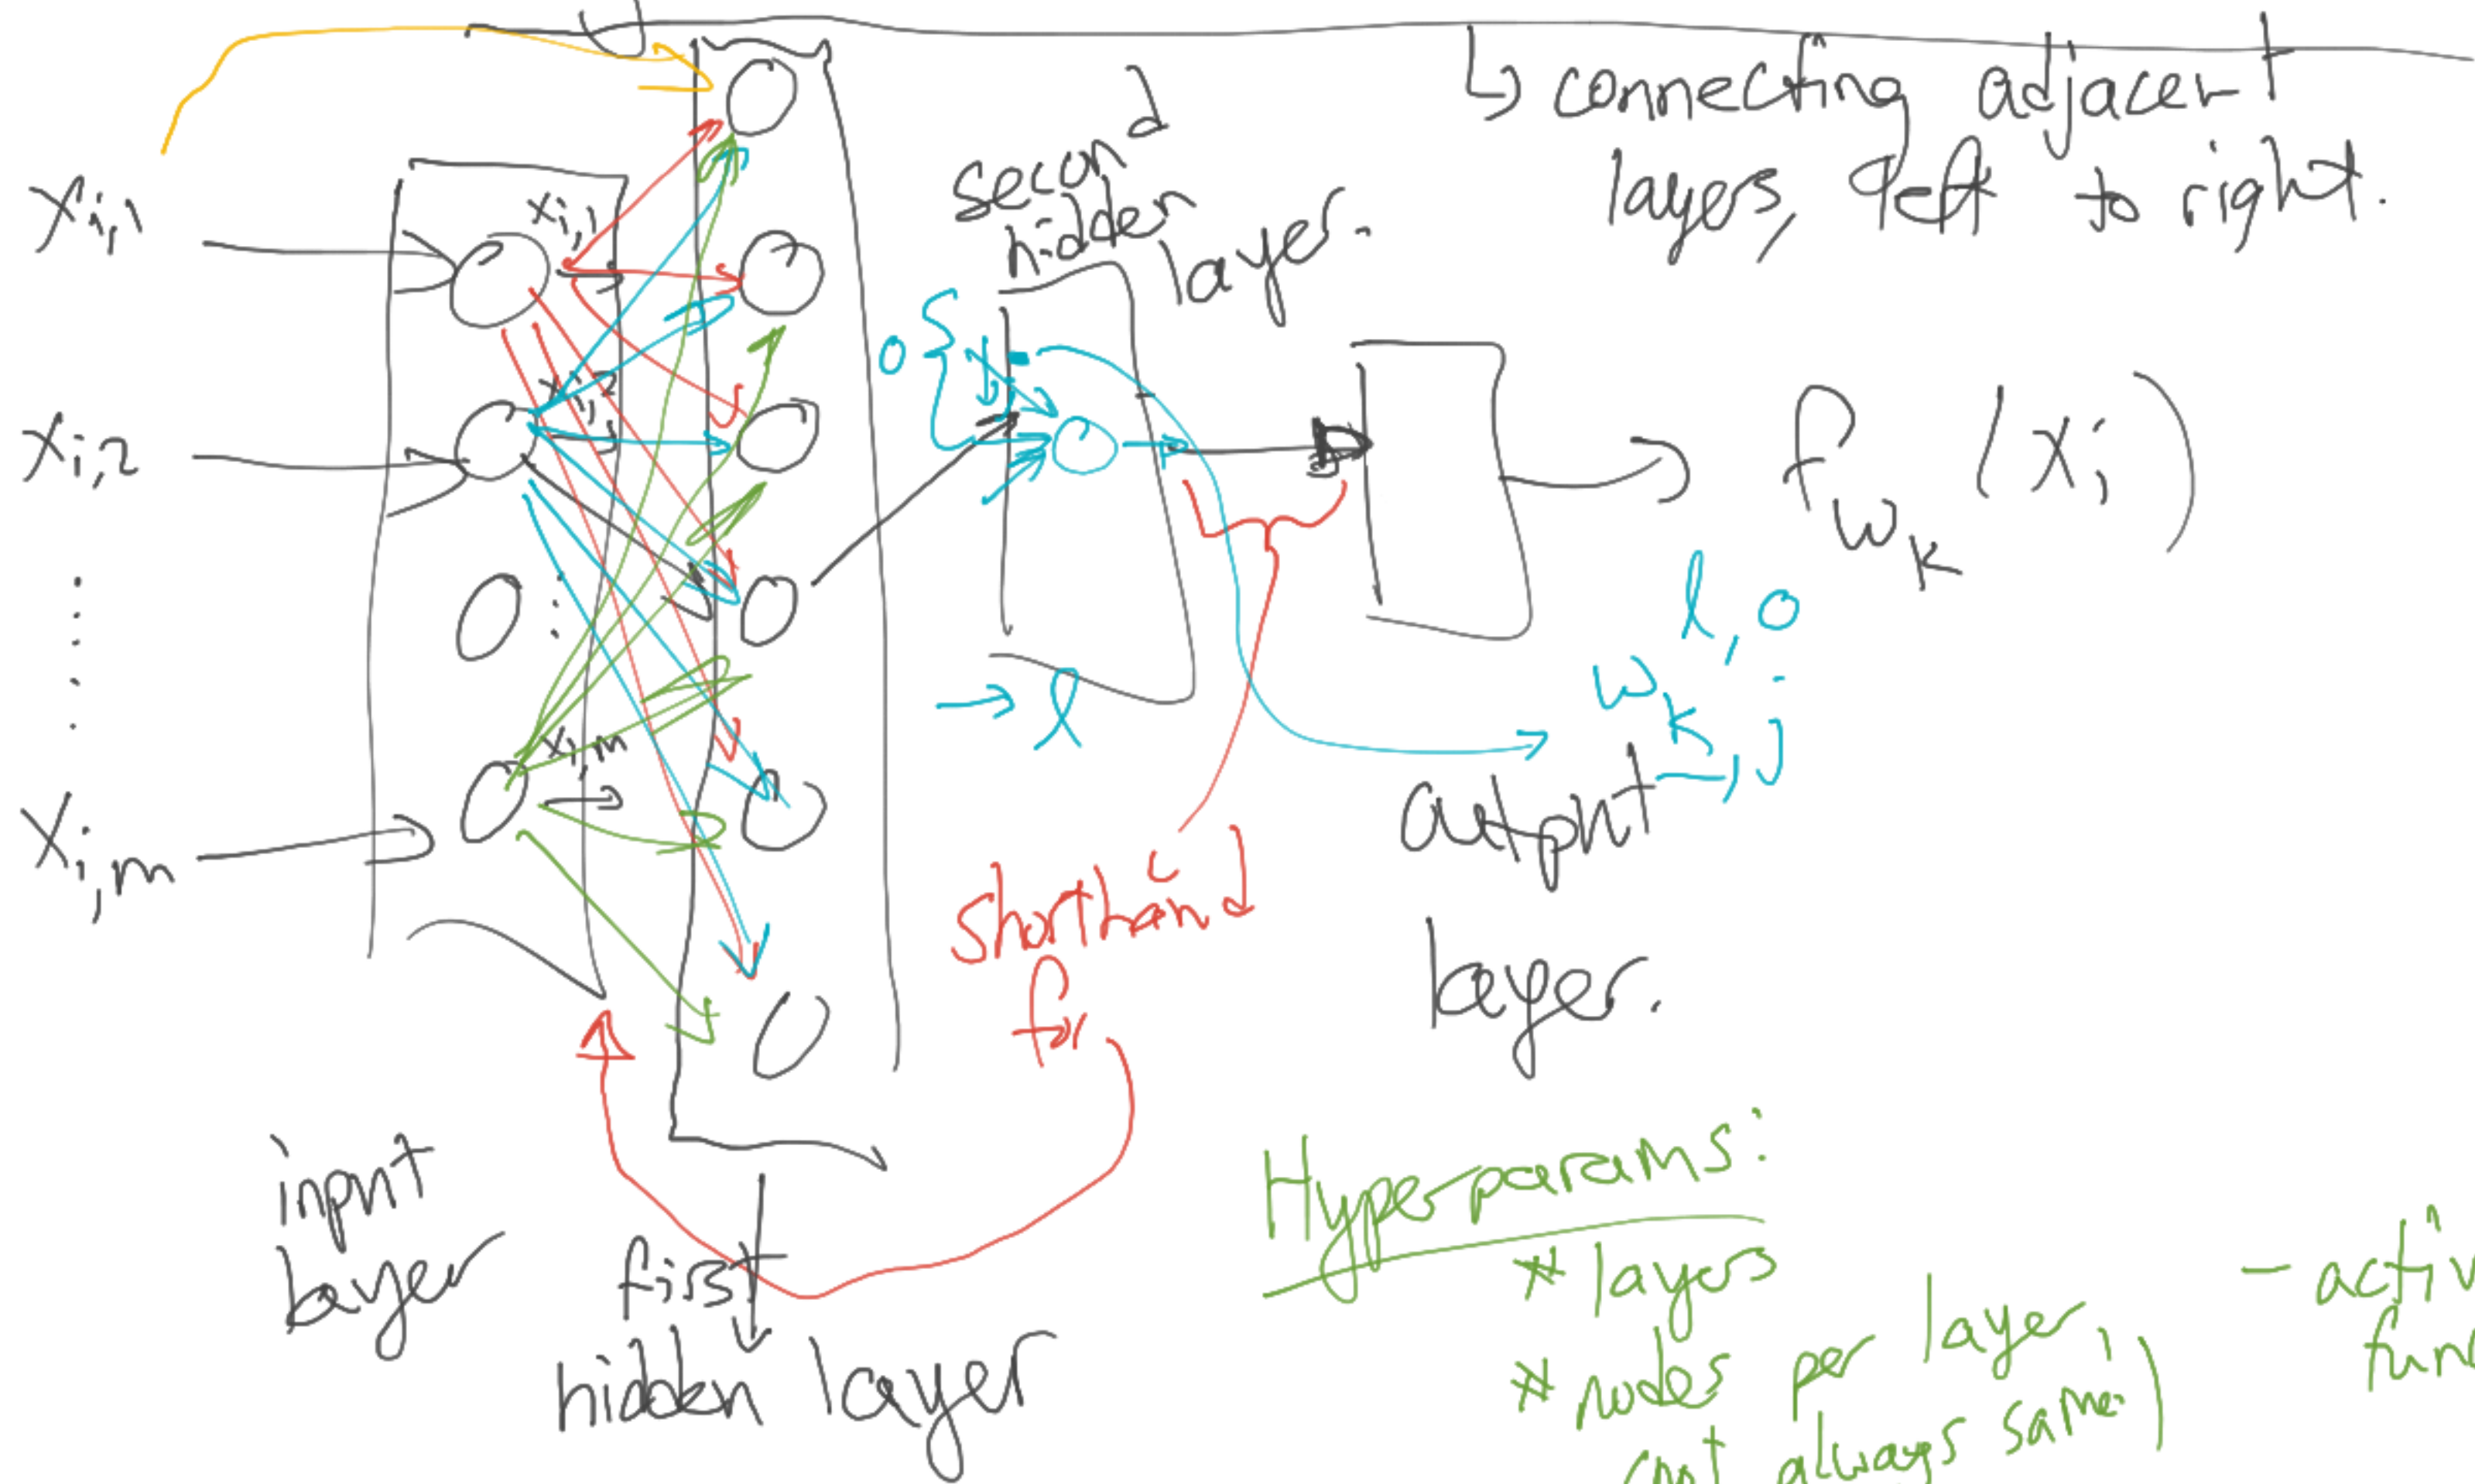 ↳ connecting adjacent
layers, left to right.
x_{i,1}
x_{i,1}
second
hidden
layer.
x_{i,2}
x_{i,2}
0
f_{w_k}(x_i)
l,0
w_{k,j}
l
x_{i,m}
x_{i,m}
output
layer.
shorthand
for
input
layer
first
hidden layer
Hyperparams:
* layers
* nodes per layer,
always same.)
- activ
fun